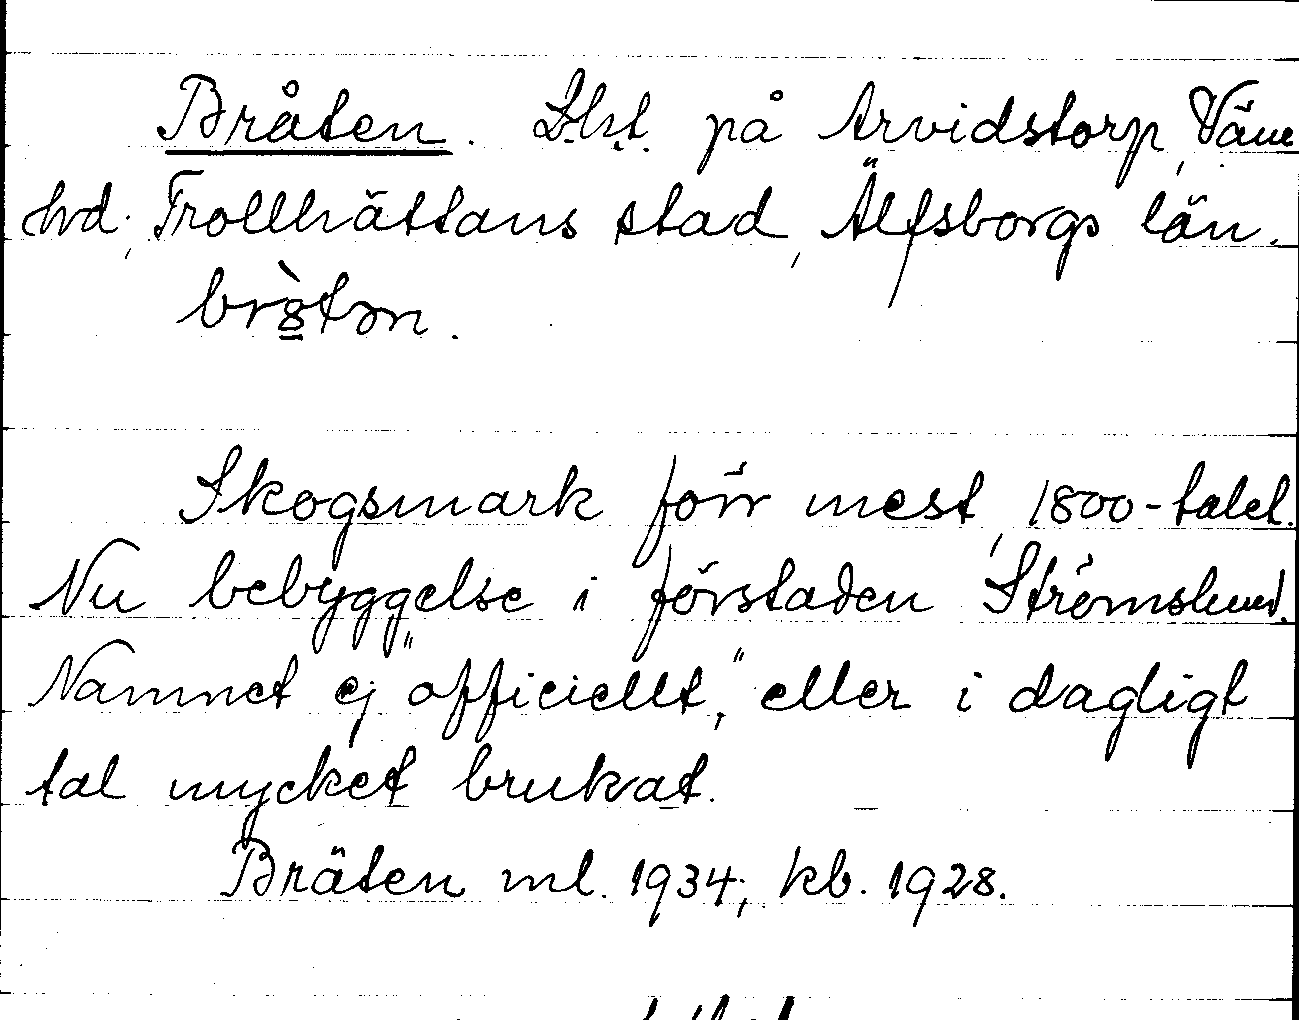 Bråten. Lht. på Arvidstorp, Väne
hd; Trollhättans stad, Älfsborgs län.
brò̱tən.
Skogsmark förr mest, 1800-talet.
Nu bebyggelse i förstaden Strömslund.
Namnet ej "officiellt," eller i dagligt
tal mycket brukat.
Bräten ml. 1934; kb. 1928.